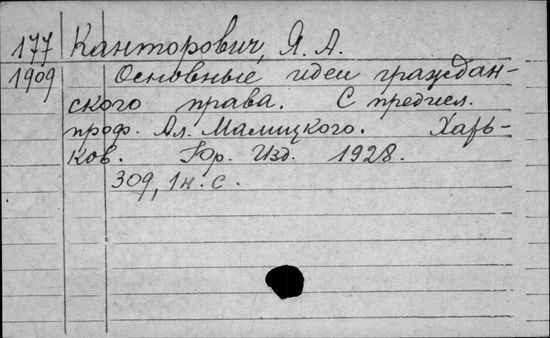 177 Канторович, Я. А.
1909 Основные идеи граждан-
ского права. С предисл.
проф. Ал. Малицкого. Харь-
ков. Юр. Изд. 1928.
309, 1 н. с.